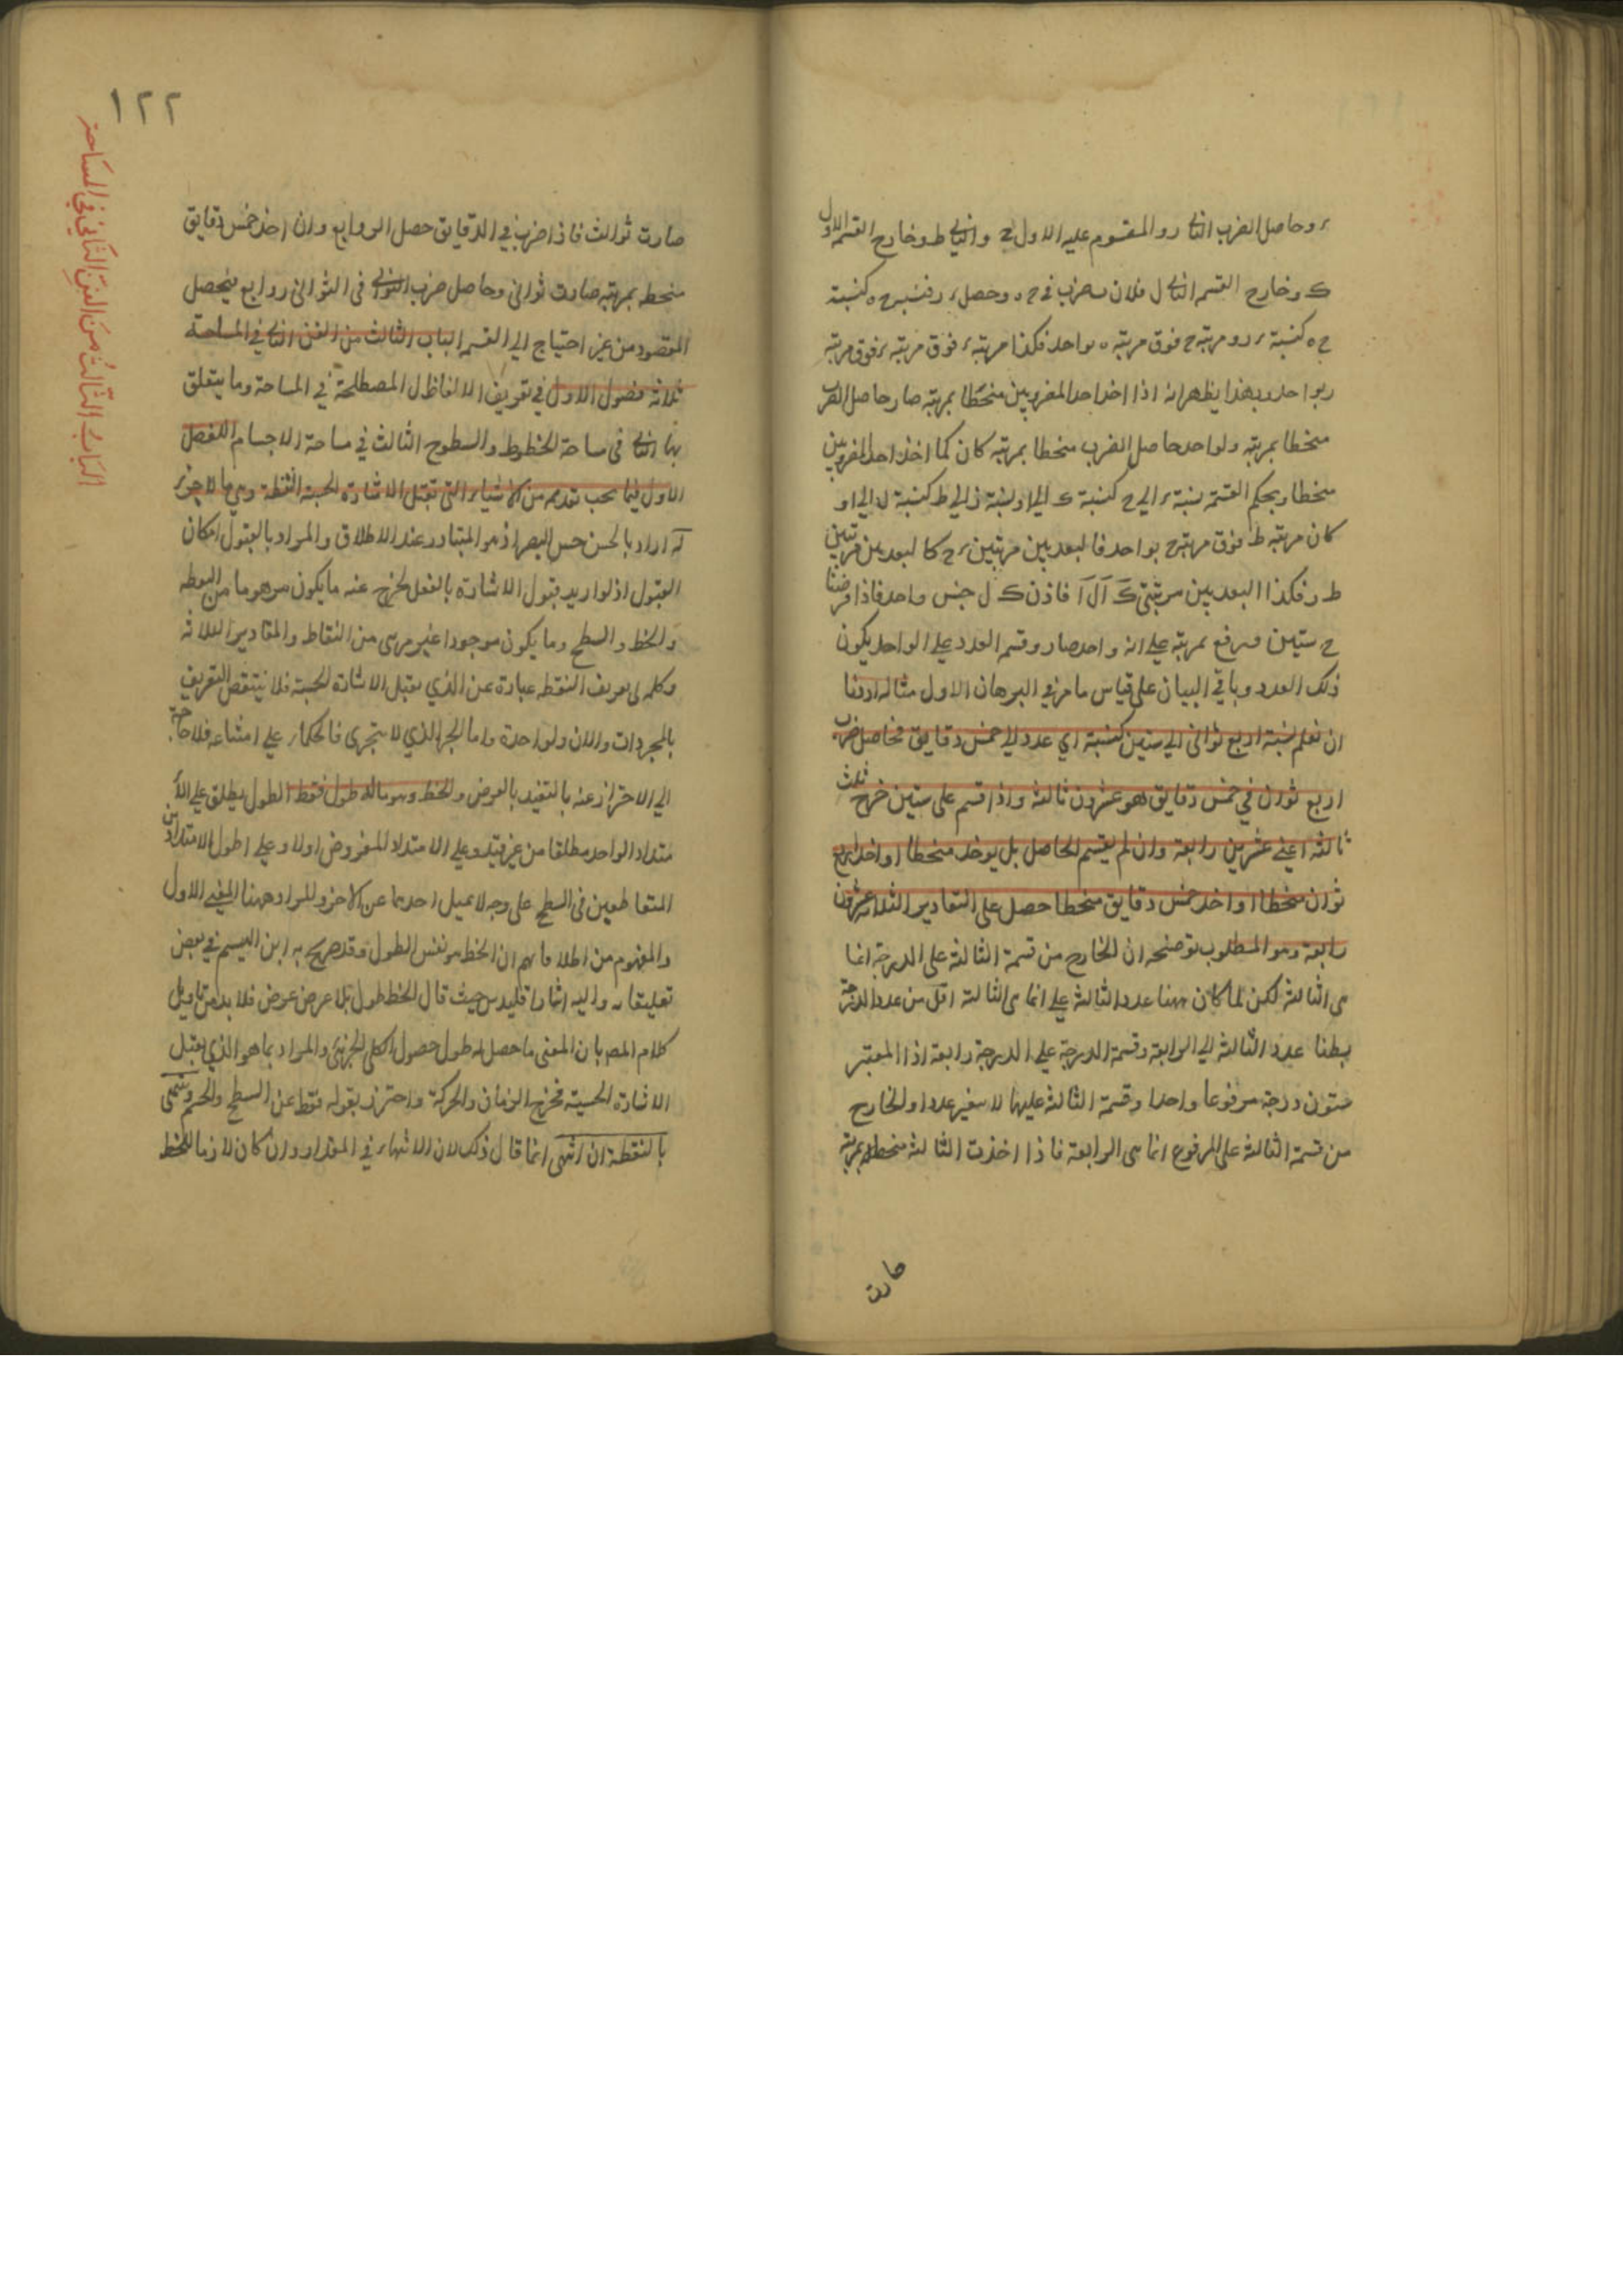 ر وحاصل الضرب الثانى ر و المقسوم عليه الاول ح والثانى ط وخارج القسم الاول
ك وخارج القسم الثانى ل فلان ضرب فى ح ه وحصل ر ر فنسبة ح ه كنسبة
ح ه كنسبة ر ر ومرتبة ح فوق مرتبة ه بواحد فكذا مرتبة ر فوق مرتبة
بواحد وبهذا يظهر انه اذا اخذ احد المضروبين منحطا بمرتبة صار حاصل الضرب
منحطا بمرتبة ولو احد حاصل الضرب منحطا بمرتبة كان كما اخذ احد المضروبين
منحطا وبحكم القسمة نسبة ر الى ح كنسبة ك الى ا ونسبة ز الى ط كنسبة ل الى ا و
كان مرتبة ط فوق مرتبة ح بواحد فالبعد بين مرتبتين ر ح كالبعد بين مرتبتين
ط ر فكذا البعد بين مرتبتى ك ا ل ا فاذن ك ل جنس واحد فاذا فرضنا
ح ستين ورفع بمرتبة على انه واحد صار وقسم العدد على الواحد يكون
ذلك العدد وباقى البيان على قياس ما مر فى البرهان الاول مثاله اردنا
ان نعلم نسبة اربع ثوانى الى ستين كنسبة اي عدد الى خمس دقايق فحاصل ضرب
اربع ثوان في خمس دقايق هو عشرون ثالثة واذا قسم على ستين خرج ثلث
ثالثة اعنى عشرين رابعة وان لم يقسم الحاصل بل يوخذ منحطا او اخذ اربع
ثوان منحطا او اخذ خمس دقايق منحطا حصل على التقادير الثلاثة عشرون
رابعة وهو المطلوب توضيحه ان الخارج من قسمة الثالثة على الدرجة انما
هى الثالثة لكن لما كان ههنا عدد الثالثة على انها هى الثالثة اقل من عدد الدرجة
بسطنا عدد الثالثة الى الرابعة وقسمة الدرجة على الدرجة رابعة اذا المعتبر
ستون درجة مرفوعا واحدا وقسمة الثالثة عليها لا يغير عددا والخارج
من قسمة الثالثة على المرفوع انما هى الرابعة فاذا اخذت الثالثة منحطة بمرتبة
صارت
١٢٢
الباب الثالث من الفن الثاني في المساحة
صارت ثوالث فاذا ضرب في الدقايق حصل الروابع وان اخذ خمس دقايق
منحطه بمرتبة صارت ثوانى وحاصل ضرب الثوانى فى الثوانى روابع فيحصل
المقصود من غير احتياج الى القسم الباب الثالث من الفن الثانى في المساحة
ثلاثة فصول الاول في تعريف الالفاظ المصطلحة في المساحة وما يتعلق
بها الثانى فى مساحة الخطوط والسطوح الثالث في مساحة الاجسام الفصل
الاول فيما يجب تقديمه من الاشياء التى تقبل الاشارة الحسية النقطة وهي ما لا جزء
له اراد بالحسن حس البصر اذ هو المتبادر عند الاطلاق والمراد بالقبول امكان
القبول اذ لو اريد قبول الاشارة بالفعل لخرج عنه ما يكون موهوما من النقطه
والخط والسطح وما يكون موجودا غير مرئى من النقاط والمقادير الثلاثة
وكلمه فى تعريف النقطه عبارة عن الذي يقبل الاشارة الحسية فلا ينتقض التعريف
بالمجردات والان والوحدة واما الجزء الذي لا يتجزى فالحكماء على امتناعه فلا حاجة
الى الاحتراز عنه بالتقييد بالعرض والخط وهو ماله طول فقط الطول يطلق على الا
متداد الواحد مطلقا من غير قيد وعلى الامتداد المفروض اولا وعلى اطول الامتدادين
المتقاطعين فى السطح على وجه لا يميل احدهما عن الاخر والمراد ههنا المعنى الاول
والمفهوم من اطلاقاتهم ان الخط هو نفس الطول وقد صرح به ابن الهيثم في بعض
تعليقاته واليه اشار اقليدس حيث قال الخط طول بلا عرض عرض فلا بد من تاويل
كلام المص بان المعنى ما حصل له طول حصول الكلى لجزئى والمراد بما هو الذي يقبل
الاشارة الحسية فخرج الزمان والحركة واحترز بقوله فقط عن السطح والجسم وينتهى
بالنقطة ان انتهى انما قال ذلك لان الانتهاء في المقدار وان كان لازما للخط